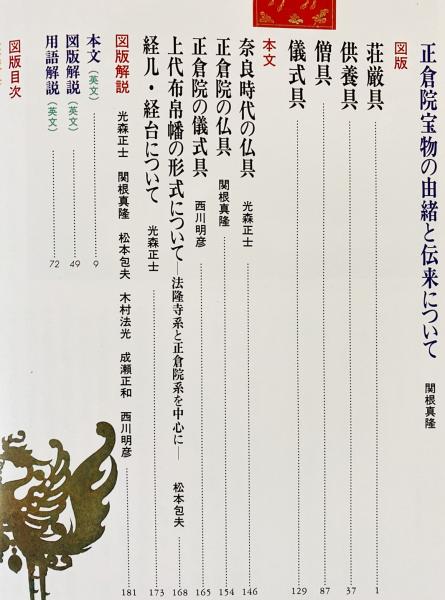 正倉院宝物の由緒と伝来について 関根真隆
図版
荘厳具 1
供養具 37
僧具 87
儀式具 129
本文
奈良時代の仏具 光森正士 146
正倉院の仏具 関根真隆 154
正倉院の儀式具 西川明彦 165
上代布帛幡の形式について―法隆寺系と正倉院系を中心に― 松本包夫 168
経几・経台について 光森正士 173
図版解説 光森正士 関根真隆 松本包夫 木村法光 成瀬正和 西川明彦 181
本文(英文) 9
図版解説(英文) 49
用語解説(英文) 72
図版目次